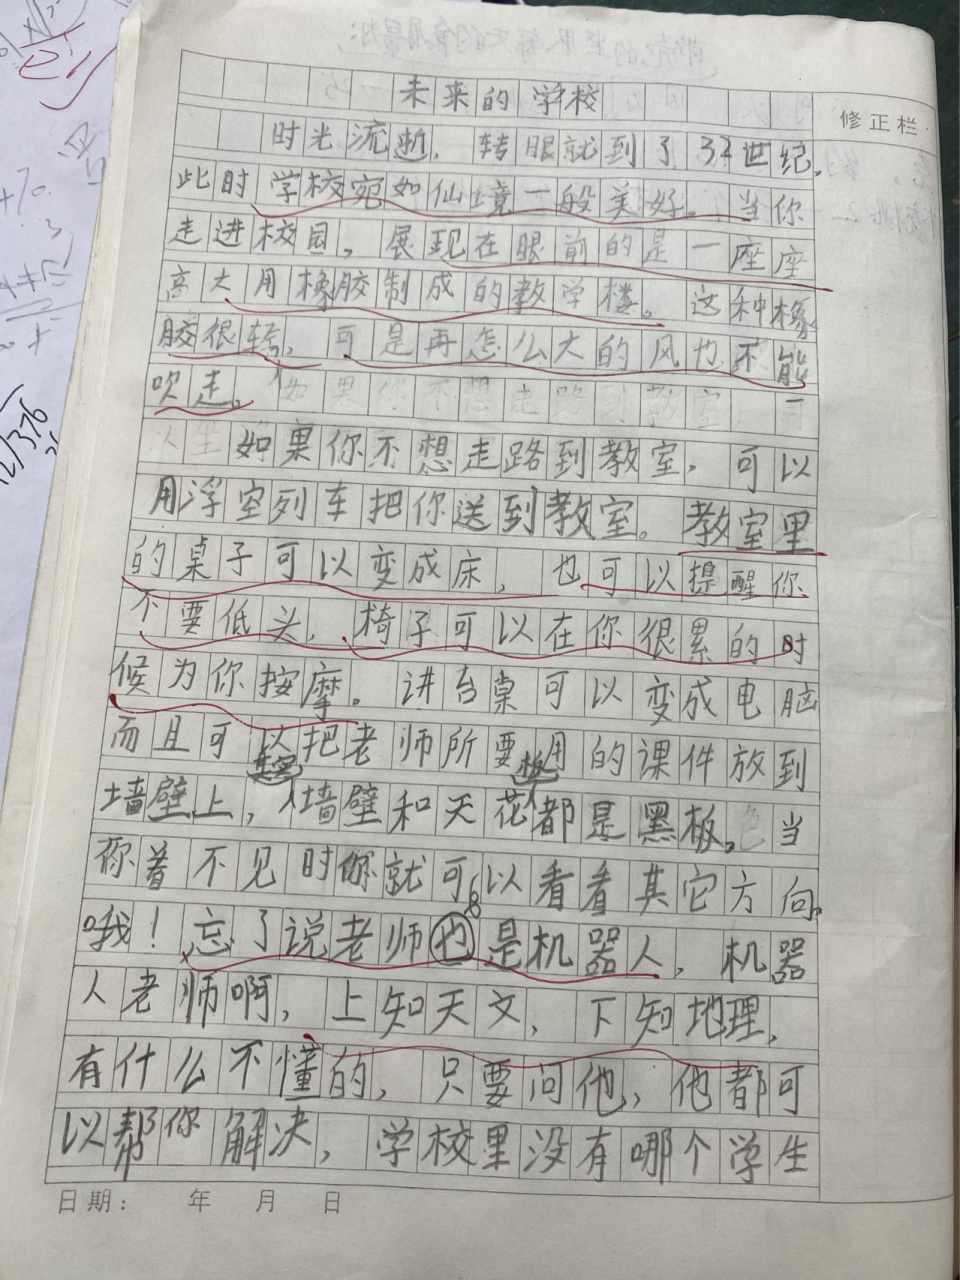 未来的学校
时光流逝，转眼就到了32世纪。
此时学校宛如仙境一般美好。当你
走进校园，展现在眼前的是一座座
高大用橡胶制成的教学楼。这种橡
胶很轻，可是再怎么大的风也不能
吹走。
如果你不想走路到教室，可以
用浮空列车把你送到教室。教室里
的桌子可以变成床，也可以提醒你
不要低头，椅子可以在你很累的时
候为你按摩。讲台桌可以变成电脑
而且可以把老师所要用的课件放到
墙壁上，其实墙壁和天花板都是黑板。当
你着不见时你就可以看看其它方向。
哦！忘了说老师也是机器人，机器
人老师啊，上知天文，下知地理，
有什么不懂的，只要问他，他都可
以帮你解决，学校里没有哪个学生
修正栏
日期： 年 月 日